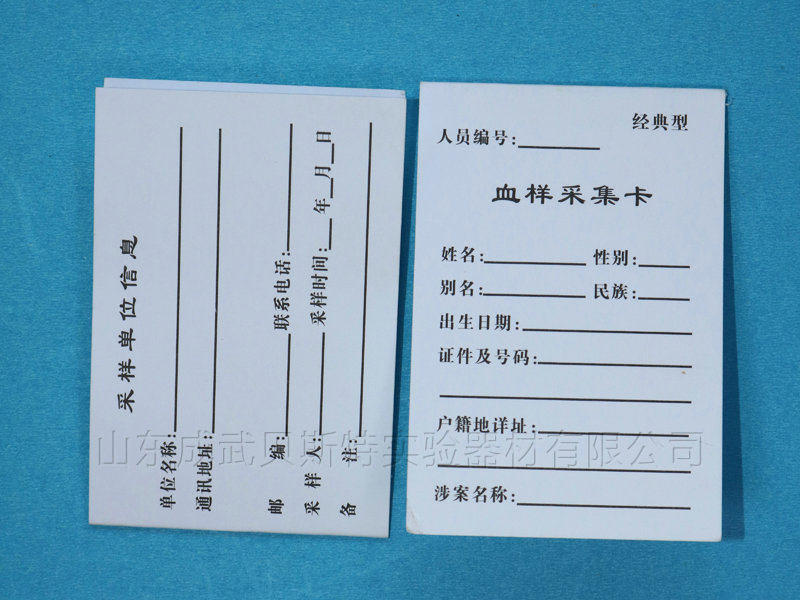 采样单位信息
单位名称:
通讯地址:
邮 编: 联系电话:
采 样 人: 采样时间: 年 月 日
备 注:
经典型
人员编号:
血样采集卡
姓名: 性别:
别名: 民族:
出生日期:
证件及号码:
户籍地详址:
涉案名称:
山东成武贝斯特实验器材有限公司